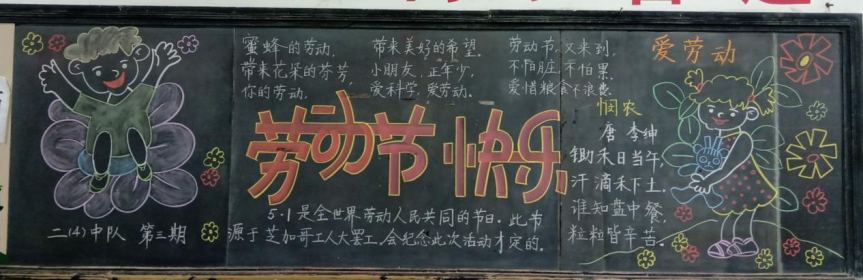 蜜蜂的劳动,
带来花朵的芬芳,
你的劳动,
带来美好的希望.
小朋友,正年少,
爱科学,爱劳动.
劳动节,又来到,
不怕脏,不怕累,
爱惜粮食不浪费
爱劳动
劳动节快乐
5·1是全世界劳动人民共同的节日.此节
源于芝加哥工人大罢工,会纪念此次活动才定的.
二(4)中队 第三期
悯农
唐 李绅
锄禾日当午,
汗滴禾下土.
谁知盘中餐,
粒粒皆辛苦.